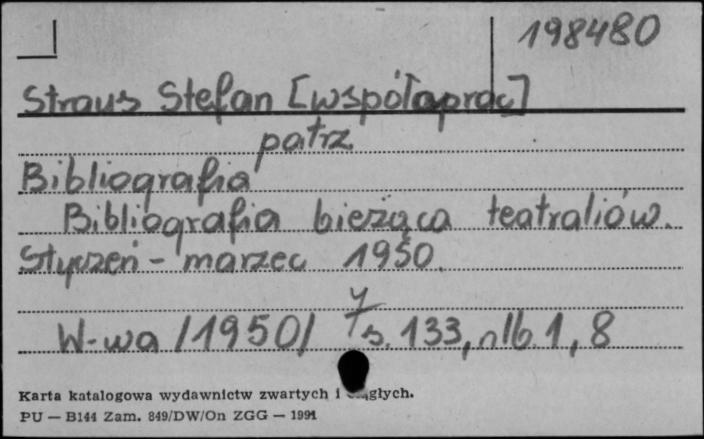 198480
Straus Stefan [współaprac]
patrz
Bibliografia
Bibliografia bieżąca teatraliów.
Styczeń - marzec 1950.
W-wa /1950/ s. 133, nlb. 1, 8
Karta katalogowa wydawnictw zwartych i ciągłych.
PU — B144 Zam. 849/DW/On ZGG — 1991